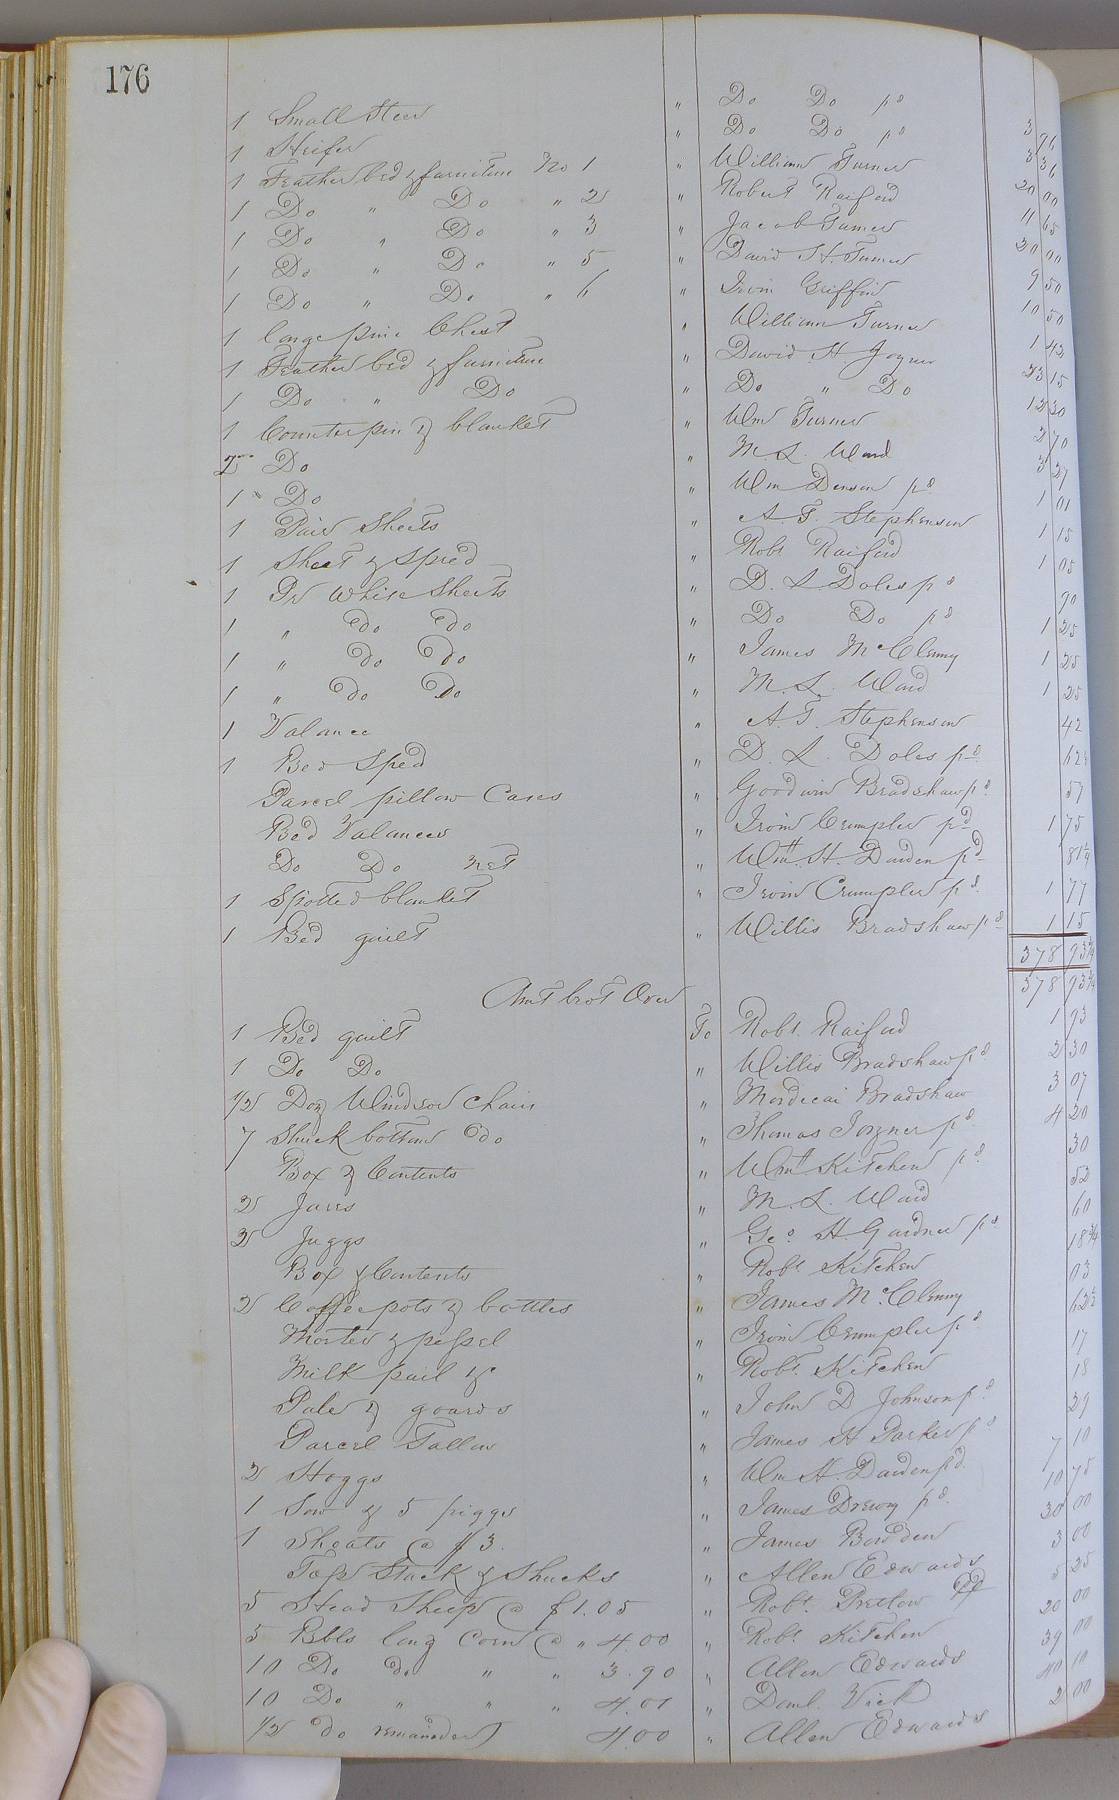 176
1 Small Steer " Do Do pd 3 96
1 Heifer " Do Do pd 3 36
1 Feather bed & furniture No 1 " William Turner 20 00
1 Do " Do " 2 " Robert Raiford 11 65
1 Do " Do " 3 " Jacob Turner 20 00
1 Do " Do " 5 " David H. Turner 9 50
1 Do " Do " 6 " Irvin Griffin 10 50
1 large pine Chest " William Turner 1 42
1 Feather bed & furniture " David H. Joyner 23 15
1 Do " Do " Do " Do 12 30
1 Counterpin & blanket " Wm Turner 2 70
2 Do " M. L. Ward 3 27
1 " Do " Wm Denson pd 1 01
1 Pair Sheets " A. T. Stephenson 1 15
1 Sheet & Spred " Robt Raiford 1 05
1 Pr White Sheets " D. L Doles pd 90
1 " do do " Do Do pd 1 25
1 " do do " James McClenny 1 25
1 " do do " M. L. Ward 1 25
1 Valance " A. T. Stephenson 42
1 Bed Spred " D. L. Doles pd 62½
Parcel pillow Cases " Goodwin Bradshaw pd 57
Bed Valances " Irvin Crumpler pd 1 75
Do Do net " Wm H. Darden pd 81¼
1 Spotted blanket " Irvin Crumpler pd 1 77
1 Bed quilt " Willis Bradshaw pd 1 15
378 93¾
Amt brot Over 378 93¾
1 Bed quilt To Robt. Raiford 1 93
1 Do Do " Willis Bradshaw pd 2 30
1/2 Doz Windsor Chairs " Mordecai Bradshaw 3 07
7 Shuck bottom do " Thomas Joyner pd 4 20
Box & Contents " Wm Kitchen pd 30
2 Jarrs " M. L. Ward 52
2 Juggs " Geo. H. Gardner pd 60
Box & Contents " Robt Kitchen 18¾
2 Coffee pots & bottles " James McClenny 03
Morter & pessel " Irvin Crumpler pd 62½
Milk pail &c " Robt. Kitchen 17
Pale & goards " John D Johnson pd 18
Parcel Tallow " James H Parker pd 29
2 Hoggs " Wm H. Darden pd 7 10
1 Sow & 5 piggs " James Drewry pd 10 75
1 Shoats @ $3. " James Bowden 30 00
Top Stack & Shucks " Allen Edwards 3 00
5 Head Sheep @ $1.05 " Robt. Pretlow pd 5 25
5 Bbls long Corn @ " 4.00 " Robt Kitchen 20 00
10 Do do " " 3.90 " Allen Edwards 39 00
10 Do " " " 4.01 " Danl. Vick 40 10
1/2 do remainder 4.00 " Allen Edwards 2 00